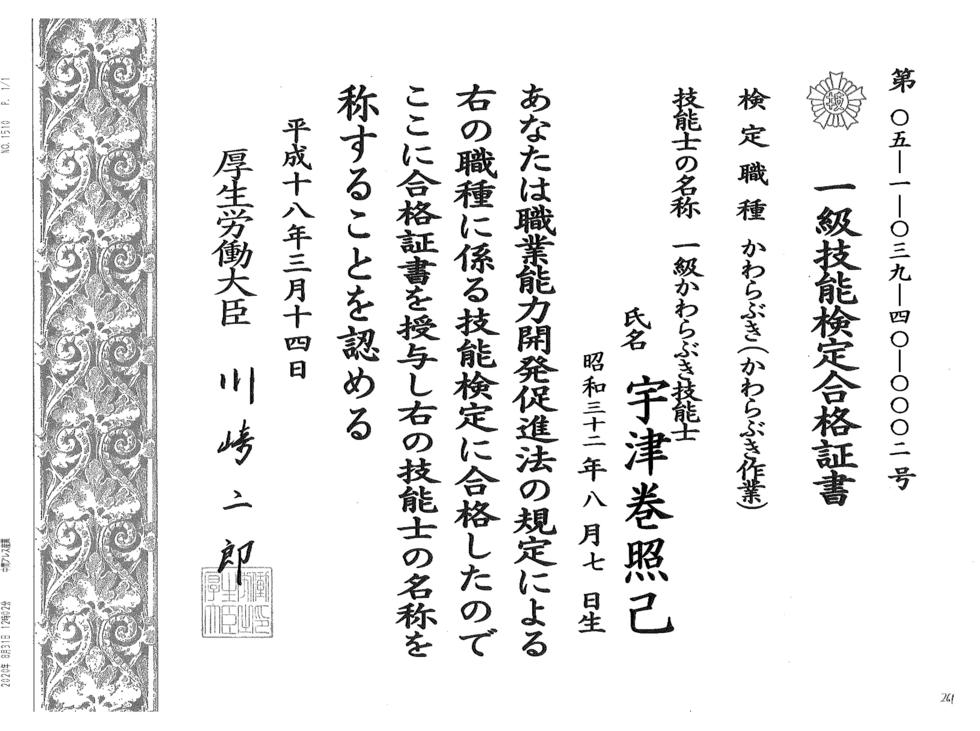 第〇五―一―〇三九―四〇―〇〇〇二号
一級技能検定合格証書
検定職種 かわらぶき(かわらぶき作業)
技能士の名称 一級かわらぶき技能士
氏名 宇津巻照己
昭和三十二年八月七日生
あなたは職業能力開発促進法の規定による
右の職種に係る技能検定に合格したので
ここに合格証書を授与し右の技能士の名称を
称することを認める
平成十八年三月十四日
厚生労働大臣 川崎二郎
NO. 1510 P. 1/1
2020年 8月31日 12時02分
261